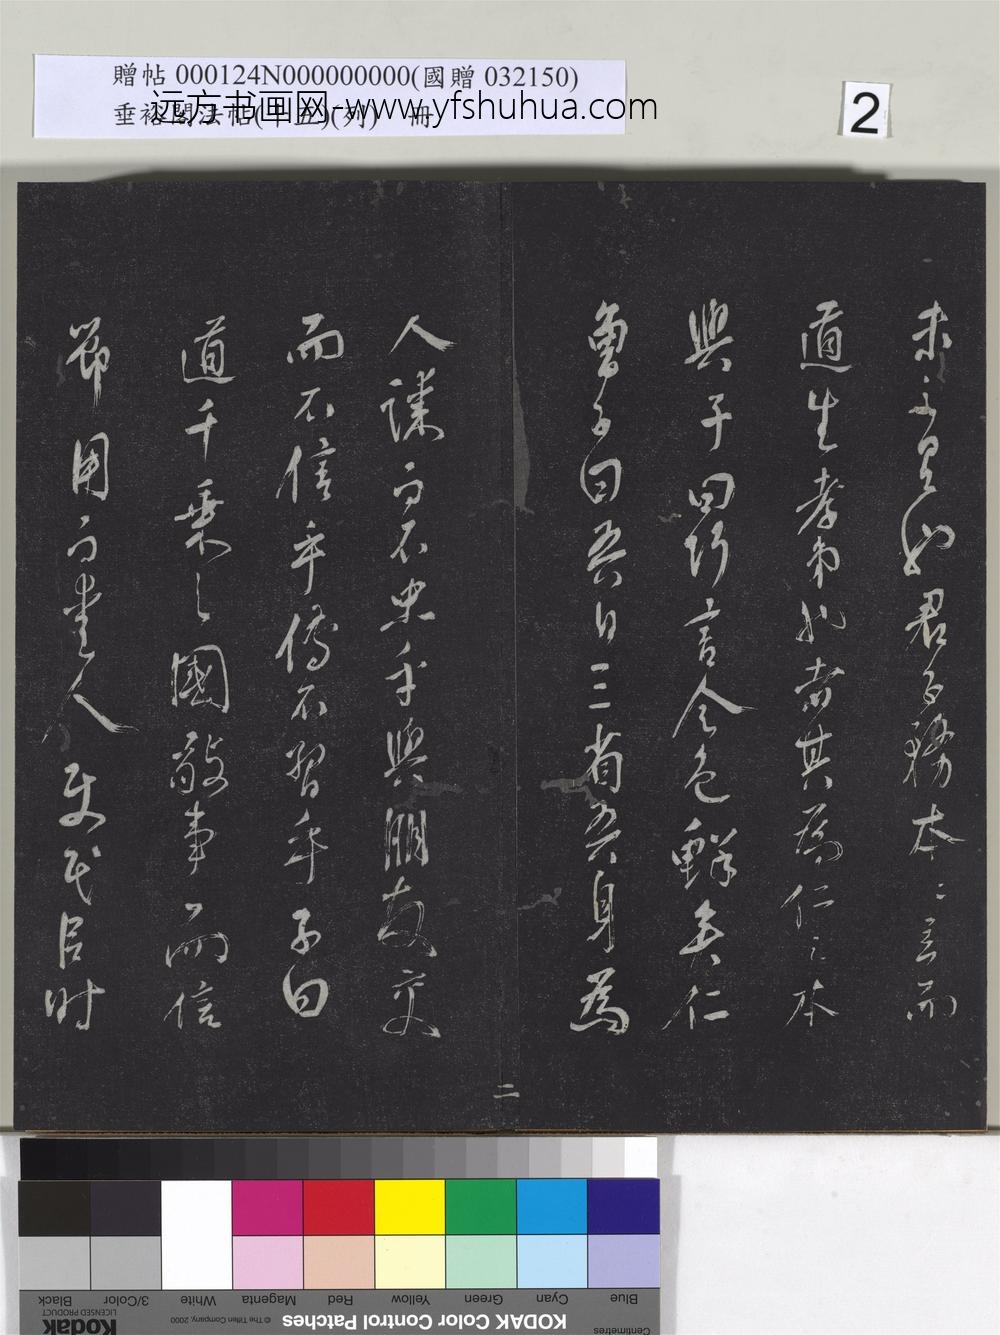 贈帖 000124N000000000(國贈 032150)
垂裕閣法帖(十五)(列) 冊
远方书画网-www.yfshuhua.com
2
未之有也君子務本〻立而
道生孝弟也者其為仁之本
與子曰巧言令色鮮矣仁
曾子曰吾日三省吾身為
二
人謀而不忠乎與朋友交
而不信乎傳不習乎子曰
道千乘之國敬事而信
節用而愛人使民以時
Centimetres
KODAK Color Control Patches
© The Tiffen Company, 2000
Kodak
LICENSED PRODUCT
Blue
Cyan
Green
Yellow
Red
Magenta
White
3/Color
Black